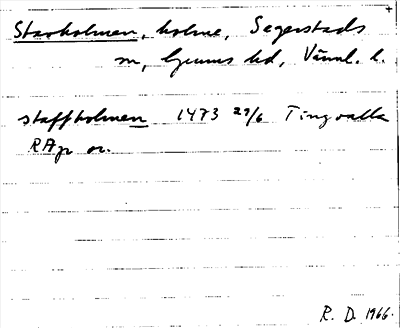 Stavholmen, holme, Segerstads
sn, Grums hd, Värml. l.
staffholmen 1473 29/6 Tingvalla
RAp or.
R. D. 1966.